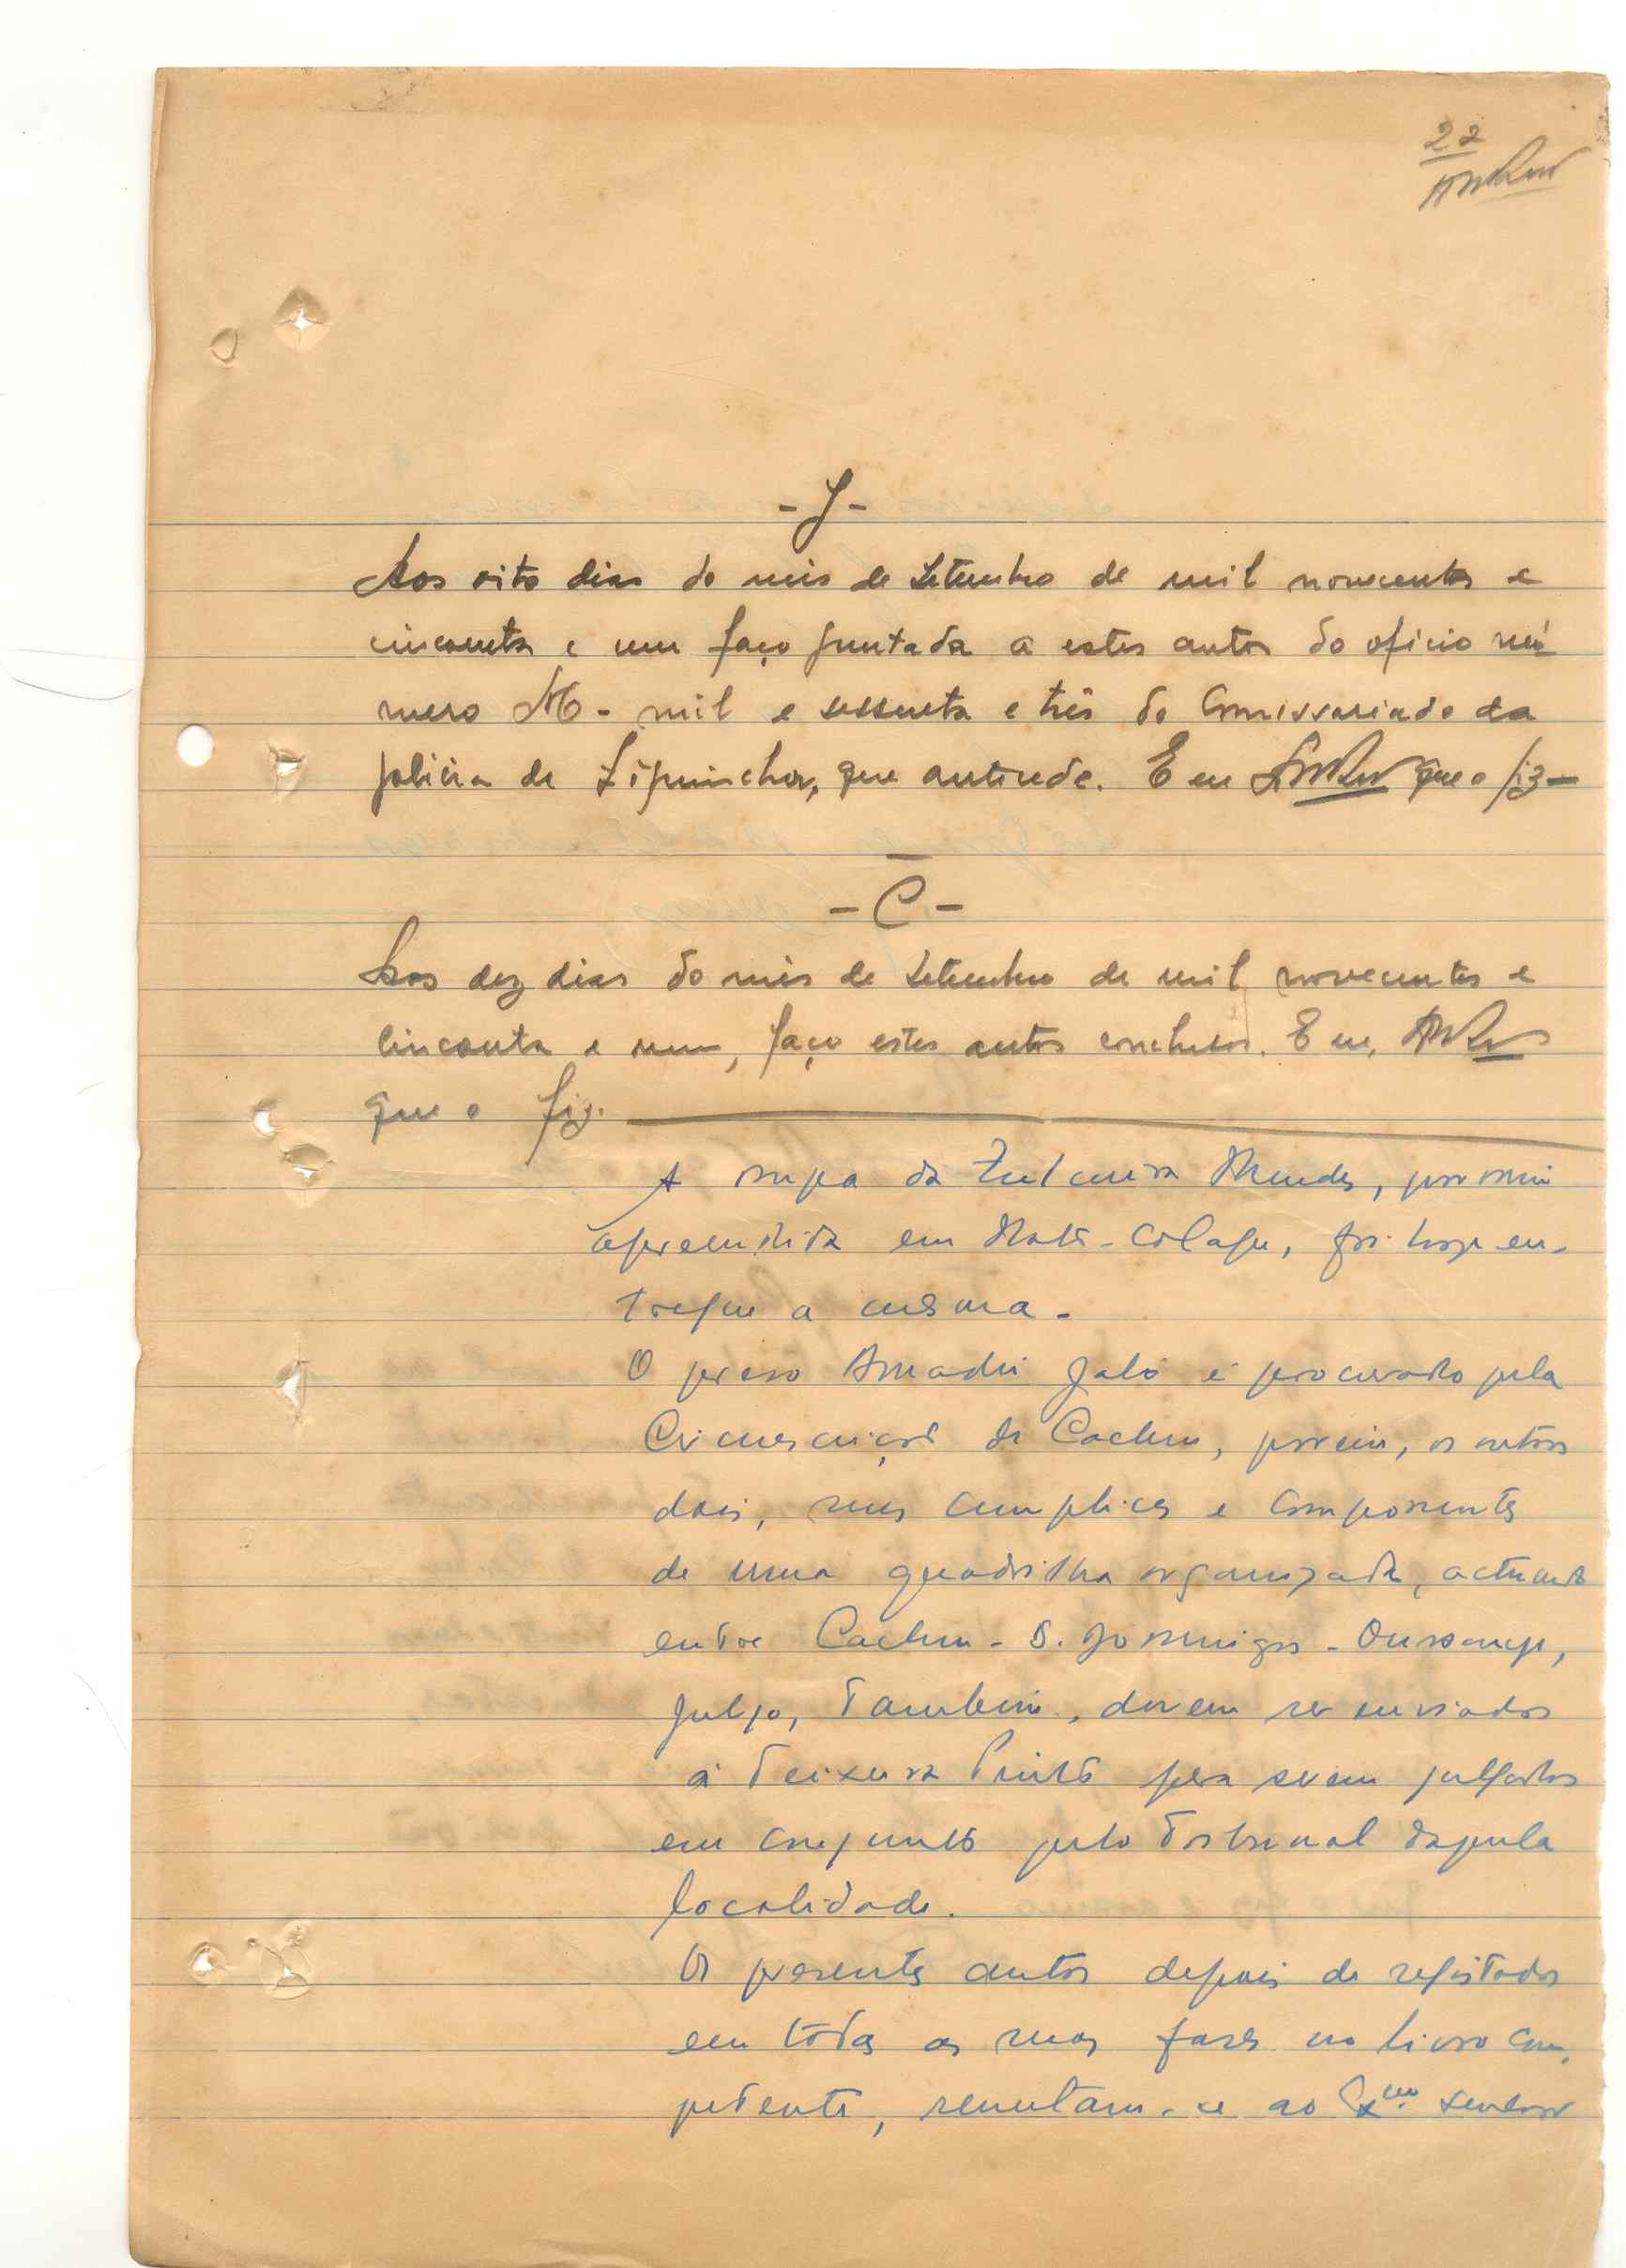 22
- J -
Aos oito dias do mês de Setembro de mil novecentos e
cincoenta e um faço juntada a estes autos do oficio nú-
mero M - mil e sessenta e três do Comissariado da
policia de Ziguinchor, que antecede. E eu que o fiz -
- C -
Aos dez dias do mês de Setembro de mil novecentos e
cincoenta e um, faço estes autos conclusos. E eu,
que o fiz.
A roupa da Mendes, por mim
apreendida em, foi hoje en-
tregue a mesma.
O preso Amadú Jaló é procurado pela
Circunscrição de Cacheu, porém, os outros
dois, seus cumplices e componentes
de uma quadrilha organizada, actuando
entre Cacheu - S. Domingos -,
julgo, tambem, devem ser enviados
a Teixeira Pinto para serem julgados
em conjunto pelo Tribunal daquela
localidade.
Os presentes autos depois de registados
em todas as suas fases no livro com-
petente, remetam-se ao Exmo. Senhor